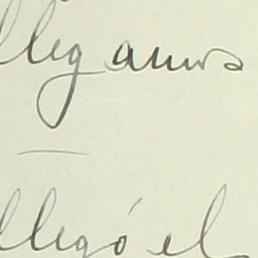 lleg amos
llegó el